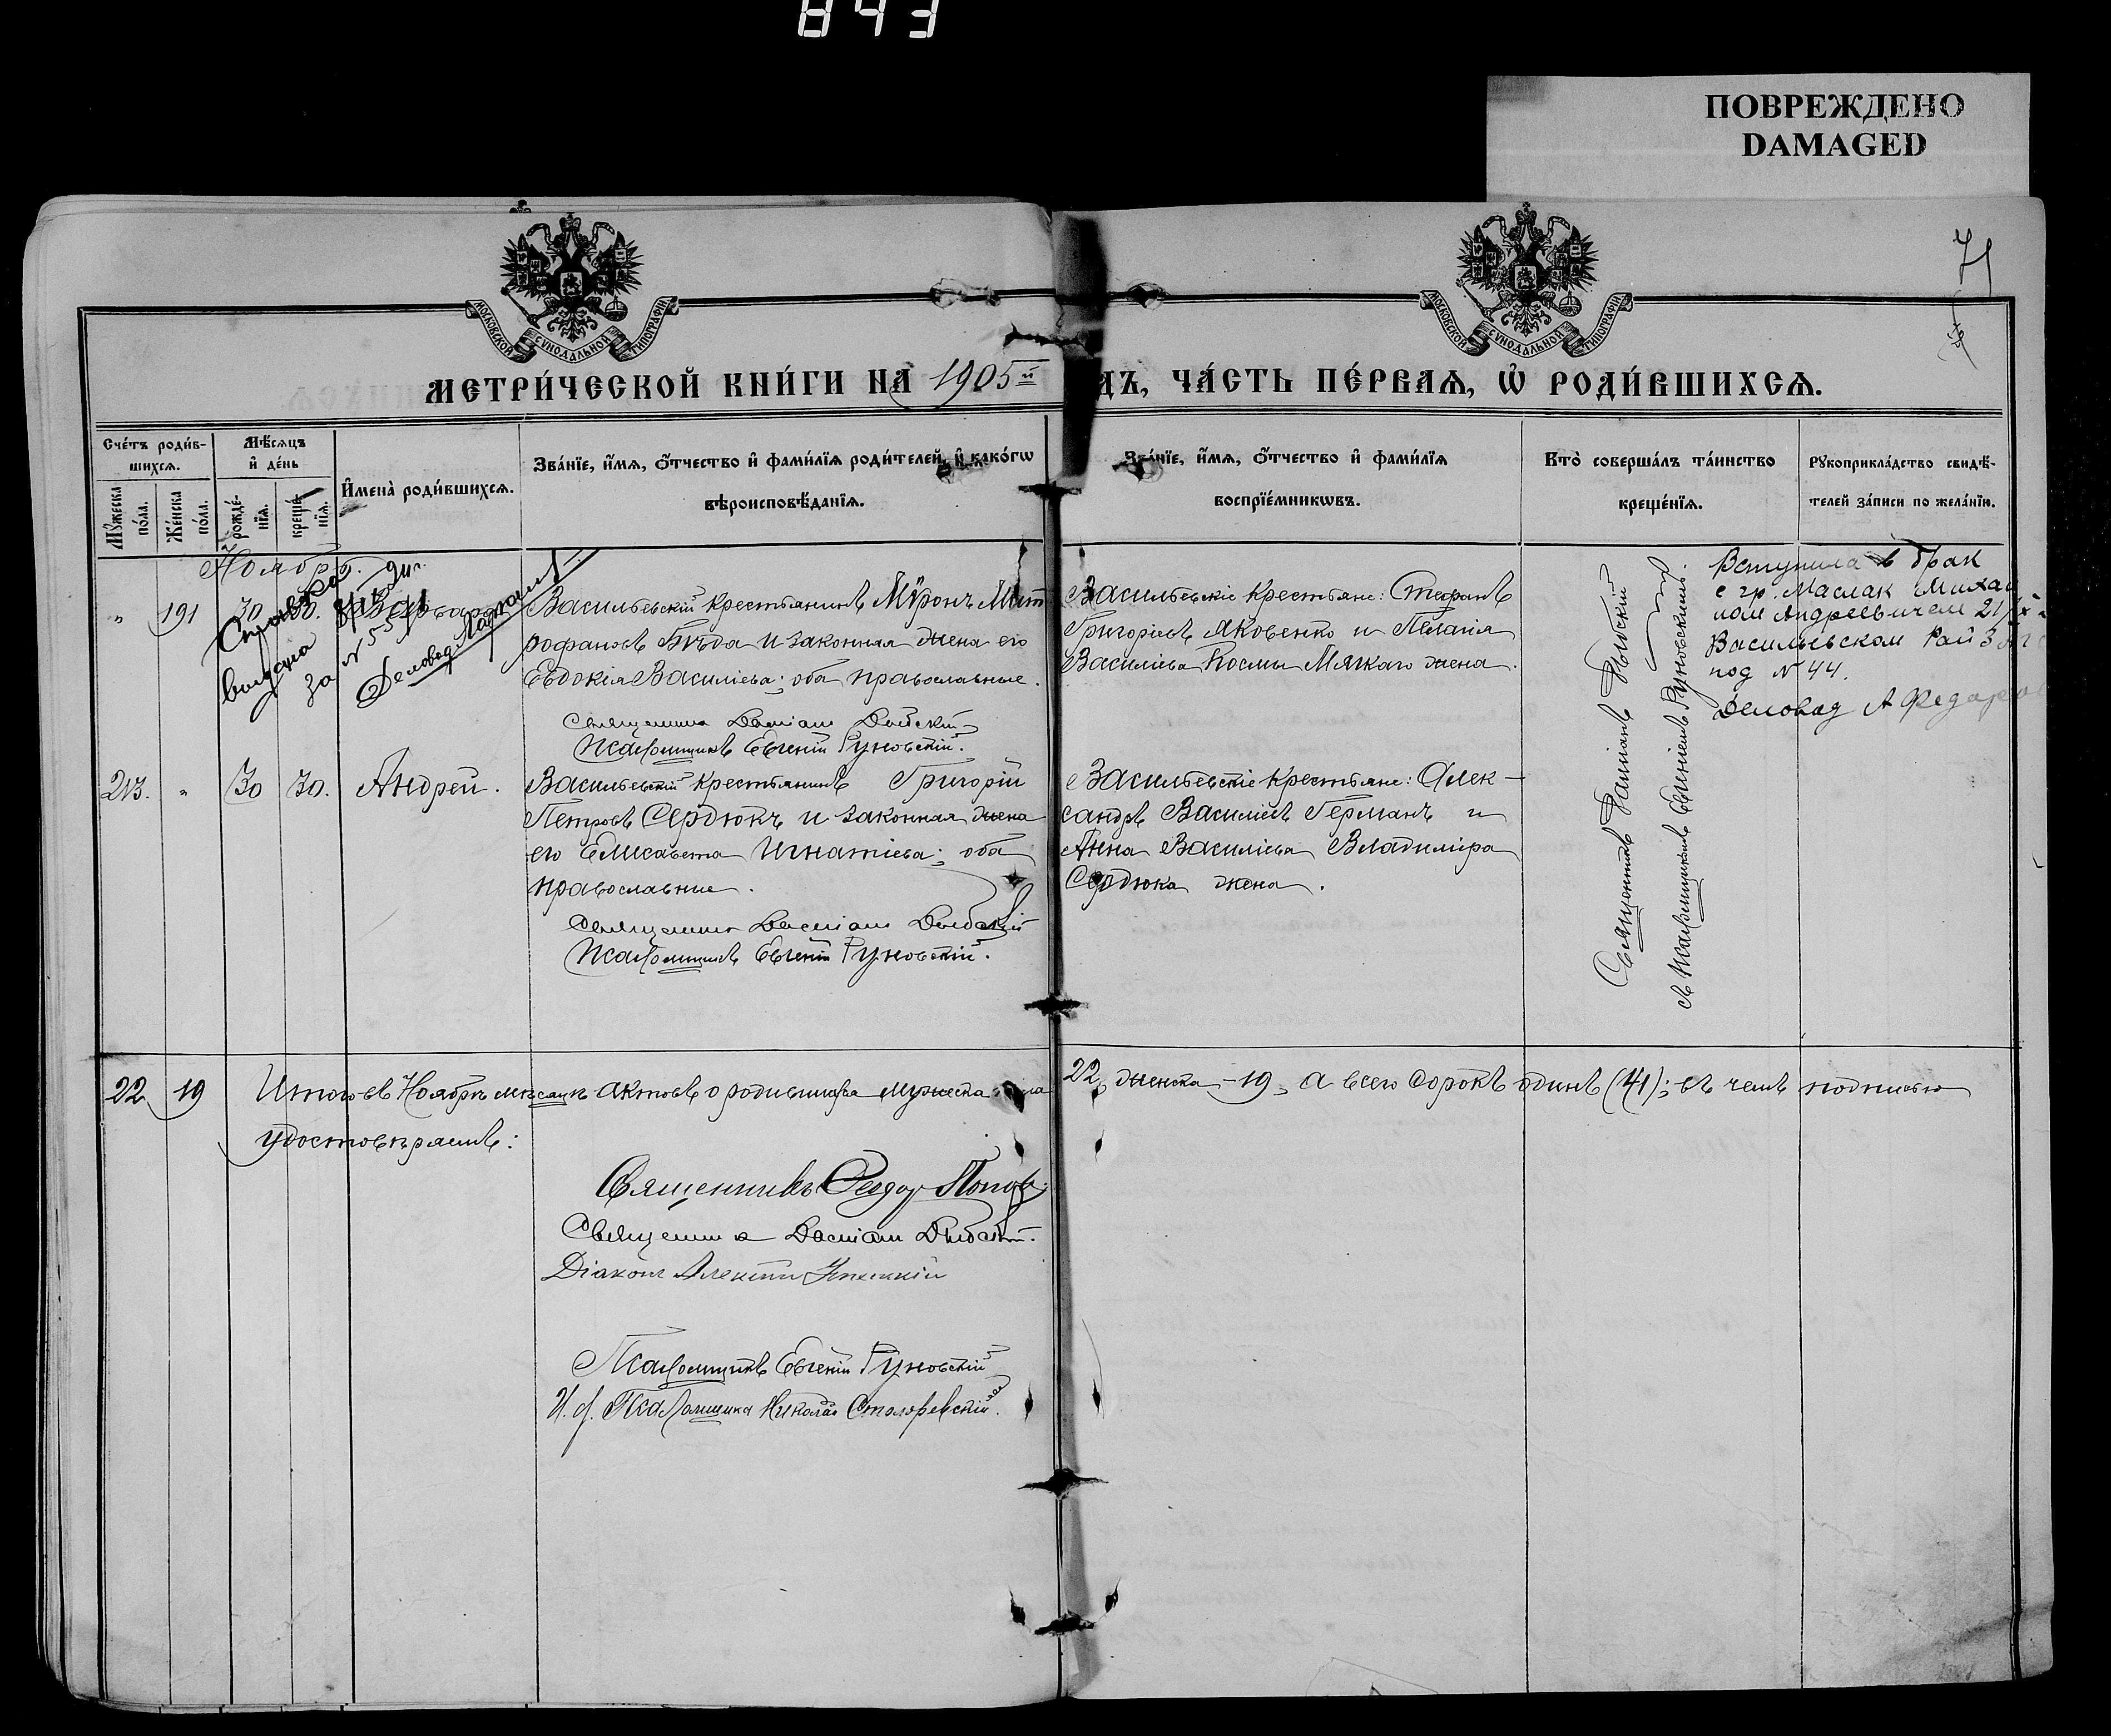 843
ПОВРЕЖДЕНО
DAMAGED
71
МОСКОВСКОЙ СУНОДАЛЬНОЙ ТИПОГРАФІИ
МОСКОВСКОЙ СУНОДАЛЬНОЙ ТИПОГРАФІИ
МЕТРИ́ЧЕСКОЙ КНИ́ГИ НА 1905й
ДЪ, ЧА́СТЬ ПЕ́РВАЯ, Ѡ РОДИ́ВШИХСЯ.
Сче́тъ роди́в-
шихся.
Мꙋ́жеска по́ла.
Же́нска по́ла.
Мѣ́сяцъ
и҆ де́нь
рожде́-
нїя.
креще́-
нїя.
И҆мена̀ роди́вшихся.
Зва́нїе, и҆́мя, ѻ҆́тчество и҆ фами́лїя роди́телей, и҆ како́гѡ
вѣроисповѣ́данїя.
Зва́нїе, и҆́мя, ѻ҆́тчество и҆ фами́лїя
воспрїе́мникѡвъ.
Кто̀ соверша́лъ та́инство
креще́нїя.
Рꙋкоприкла́дство свидѣ́-
телей за́писи по жела́нїю.
Ноябрь.
" 191 30 30. Варвара
Справка
выдана
за №
Деловод
Васильевскій крестьянинъ Мѵронъ Мит
рофановъ Бѣда и законная жена его
Евдокія Василіева; оба православные.
Священник Даміан Дыбскій
Псаломщикъ Евгеній Руновскій.
Васильевскіе крестьяне: Стефанъ
Григоріевъ Яковенко и Пелагія
Василіева Космы Мягкаго жена.
Священникъ Даміанъ Дыбскій
съ псаломщикомъ Евгеніемъ Руновскимъ.
Вступила в брак
с гр. Маслак Михаи
лом Андреевичем 21/
Васильевском Рай ЗАГС
под № 44.
Деловод А Федоров
213. " 30 30. Андрей.
Васильевскій крестьянинъ Григорій
Петровъ Сердюкъ и законная жена
его Елисавета Игнатіева; оба
православные.
Священник Даміан Дыбскій
Псаломщикъ Евгеній Руновскій.
Васильевскіе крестьяне: Алек-
сандръ Василіевъ Германъ и
Анна Василіева Владиміра
Сердюка жена.
22 19 Итого въ Ноябрѣ мѣсяцѣ актовъ о родившихся мужеска пола 22, женска - 19, а всего сорокъ одинъ (41); въ чемъ подписью
удостовѣряемъ:
Священникъ Феодоръ Попов
Священник Даміан Дыбскій.
Діаконъ Алексій
Псаломщикъ Евгеній Руновскій
И. д. Псаломщика Николай Столяревскій.